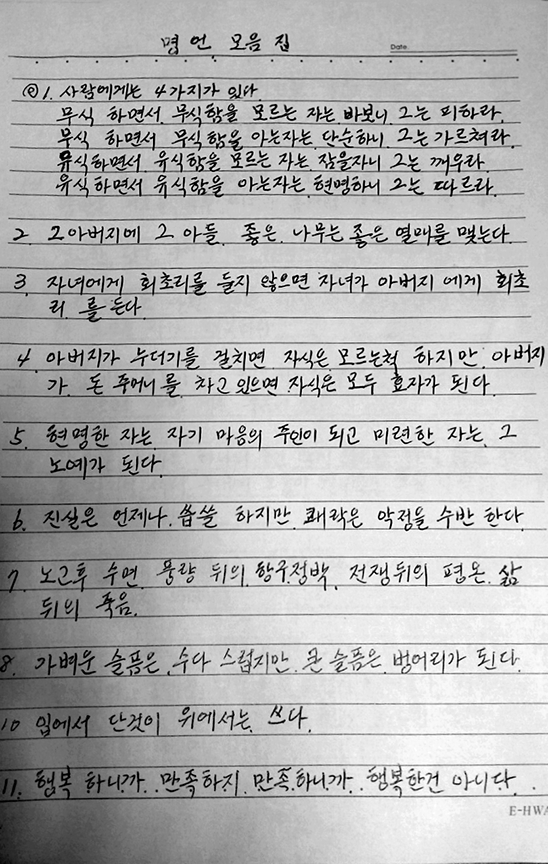 명언 모음집
Date.
◎ 1. 사람에게는 4가지가 있다
무식 하면서. 무식함을 모르는 자는 바보니. 그는 피하라.
무식 하면서 무식함을 아는자는. 단순하니. 그는 가르쳐라.
유식하면서. 유식함을 모르는 자는. 잠을자니 그는 깨우라
유식하면서 유식함을 아는자는. 현명하니 그는 따르라.
2. 그아버지에 그 아들. 좋은. 나무는 좋은 열매를 맺는다.
3. 자녀에게 회초리를 들지 않으면 자녀가 아버지 에게 회초
리 를 든다.
4. 아버지가 누더기를 걸치면 자식은 모르는척 하지만. 아버지
가. 돈 주머니를 차고 있으면 자식은 모두 효자가 된다.
5. 현명한 자는 자기 마음의 주인이 되고 미련한 자는. 그
노예가 된다.
6. 진실은 언제나. 씁쓸 하지만. 쾌락은 악정을 수반 한다.
7. 노고후 수면. 풍량 뒤의. 항구정박. 전쟁뒤의 평온. 삶
뒤의 죽음.
8. 가벼운 슬픔은. 수다 스럽지만. 큰 슬픔은. 벙어리가 된다.
10 입에서 단것이 위에서는. 쓰다.
11. 행복 하니까. 만족하지. 만족.하니.까. 행복한건 아니다.
E-HWA